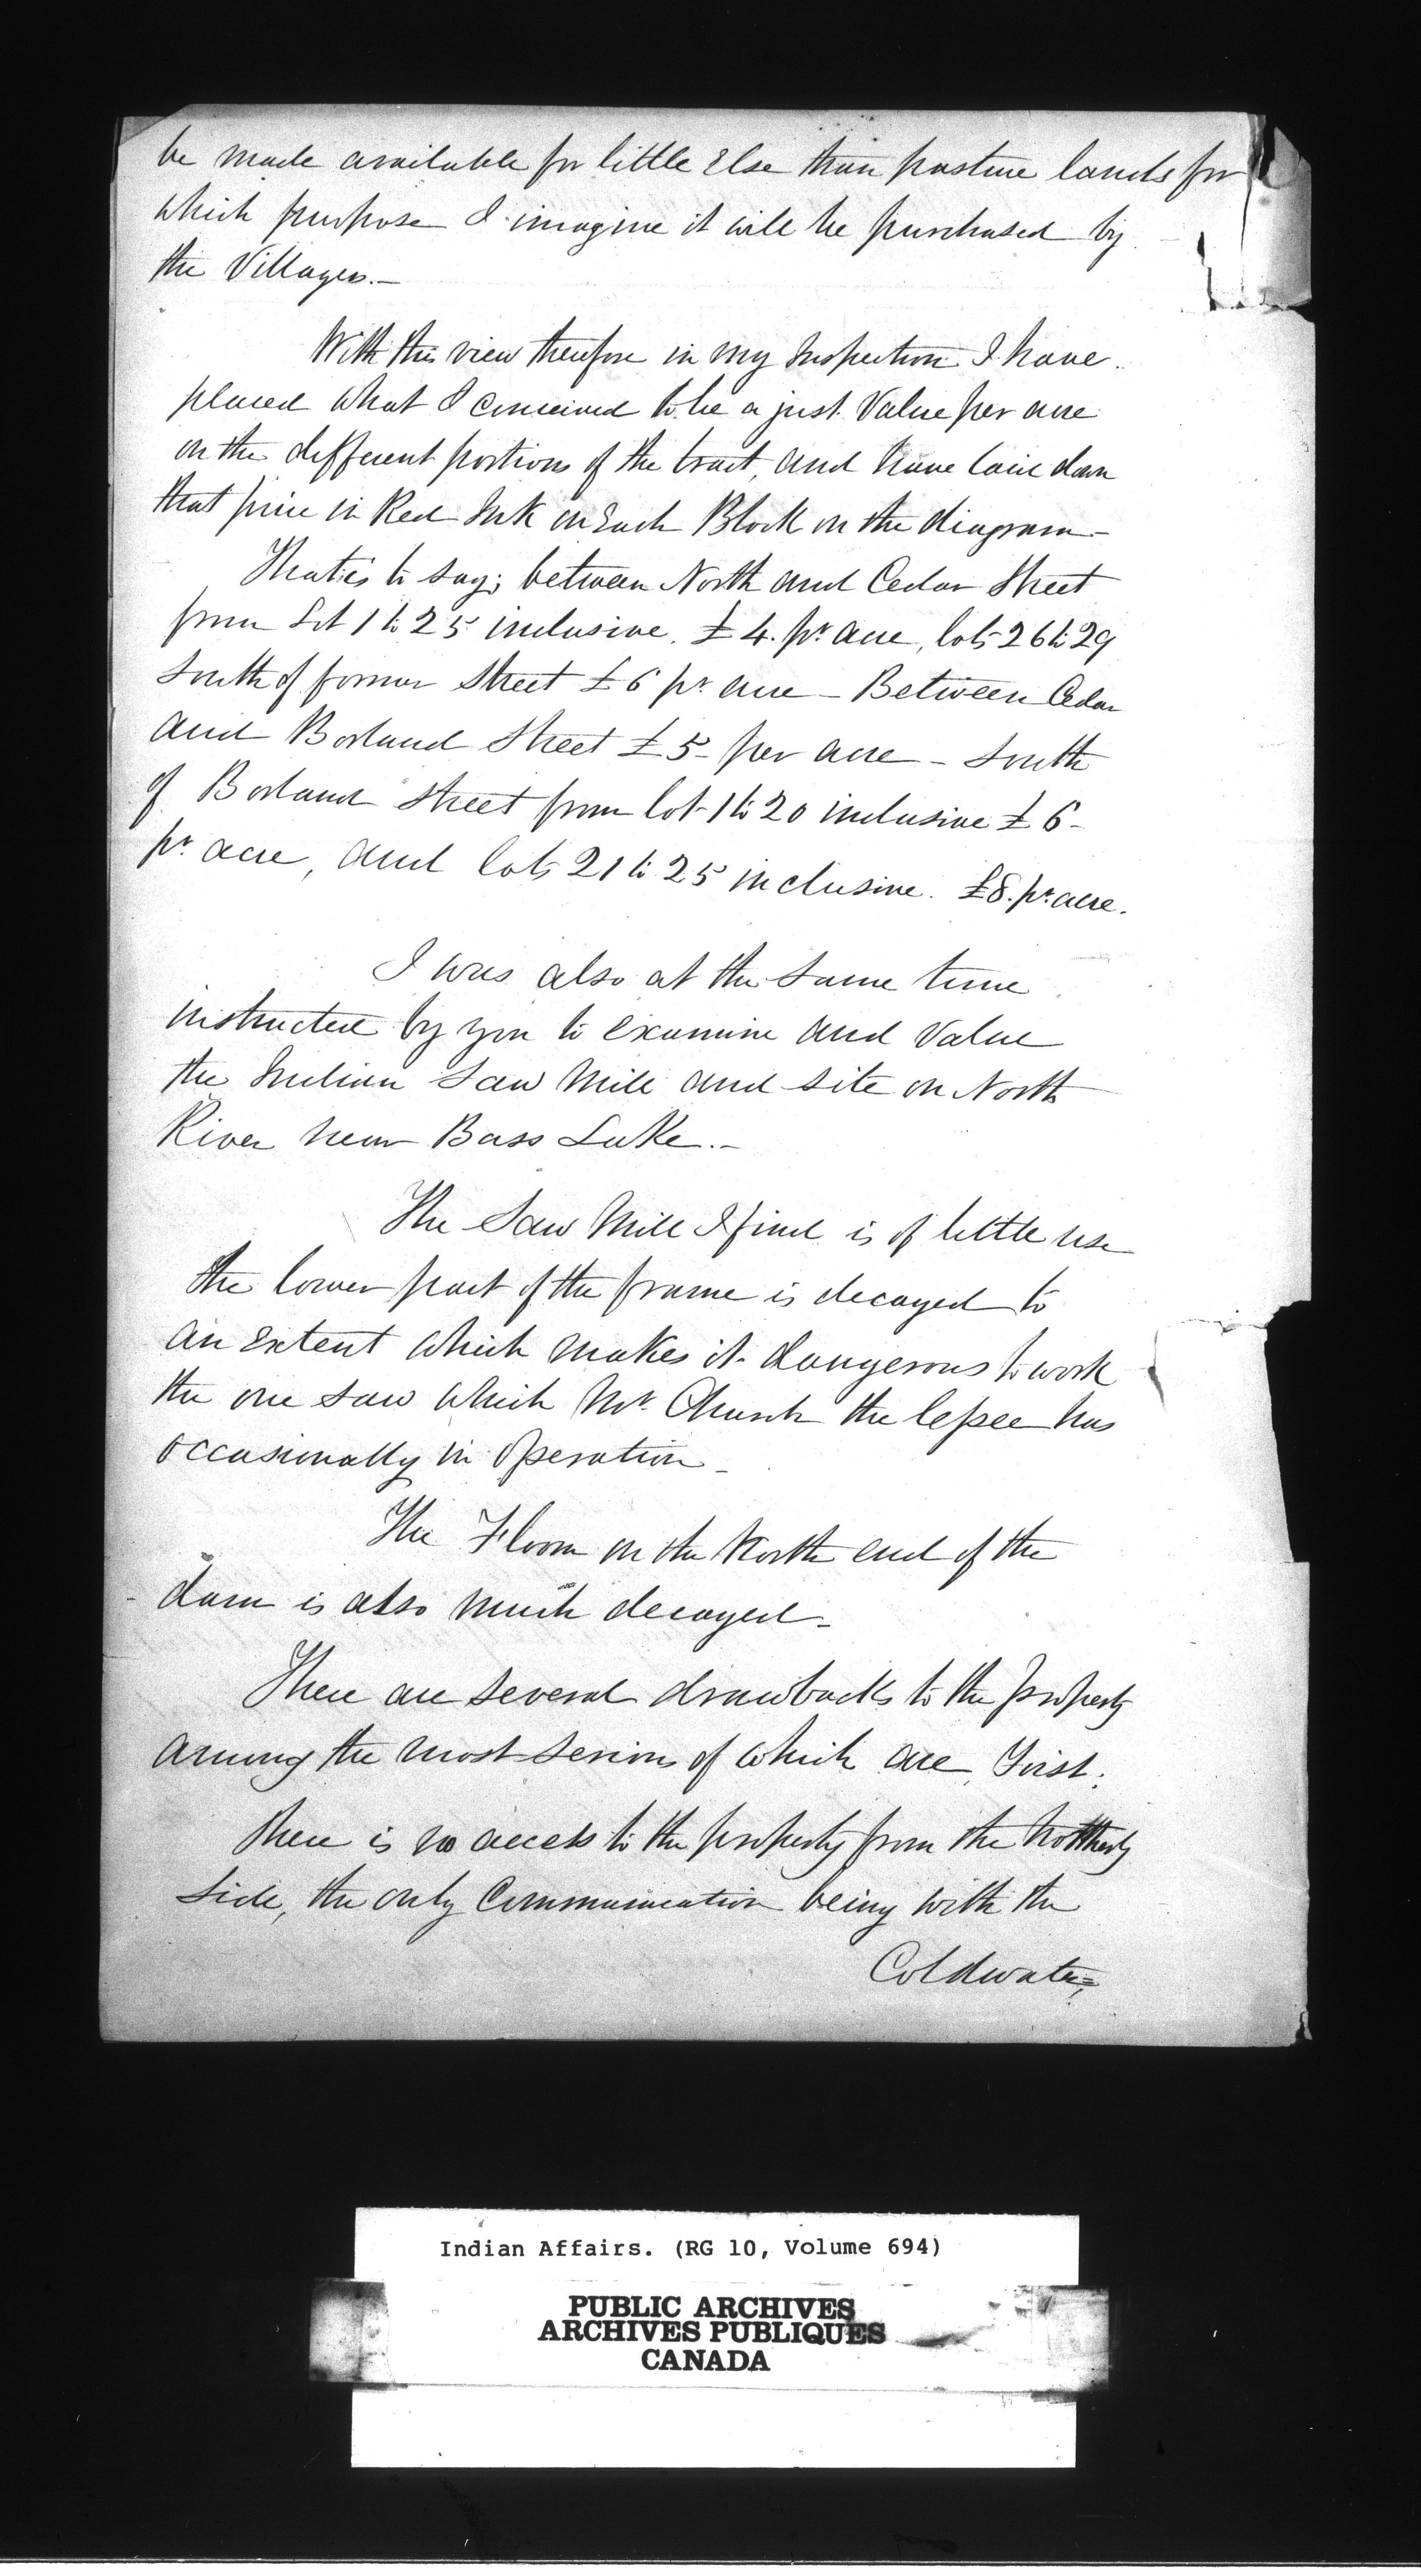 be made available for little Else than pasture lands for
which purpose I imagine it will be purchased by
the Villagers.—
With this view therefore in my Inspection I have
placed what I conceived to be a just Value per acre
on the different portions of the tract, and have laid down
that price in Red Ink on Each Block on the diagram—
That is to say; between North and Cedar Street
from Lot 1 to 25 inclusive. £4. pr. acre, lots 26 to 29
South of former Street £6 pr. acre — Between Cedar
and Borland Street £5- per acre — South
of Borland Street from lot 1 to 20 inclusive £6-
pr. acre, and lots 21 to 25 inclusive. £8. pr. acre.
I was also at the same time
instructed by you to examine and Value
the Indian Saw Mill and site on North
River near Bass Lake.—
The Saw Mill I find is of little use
the lower part of the frame is decayed to
an Extent which makes it dangerous to work
the one saw which Mr. Church the lessee has
occasionally in operation—
The Floom on the North end of the
dam is also much decayed—
There are several drawbacks to the property
among the most serious of which are, First.
There is no access to the property from the Northerly
side, the only Communication being with the
Coldwater,
Indian Affairs. (RG 10, Volume 694)
PUBLIC ARCHIVES
ARCHIVES PUBLIQUES
CANADA